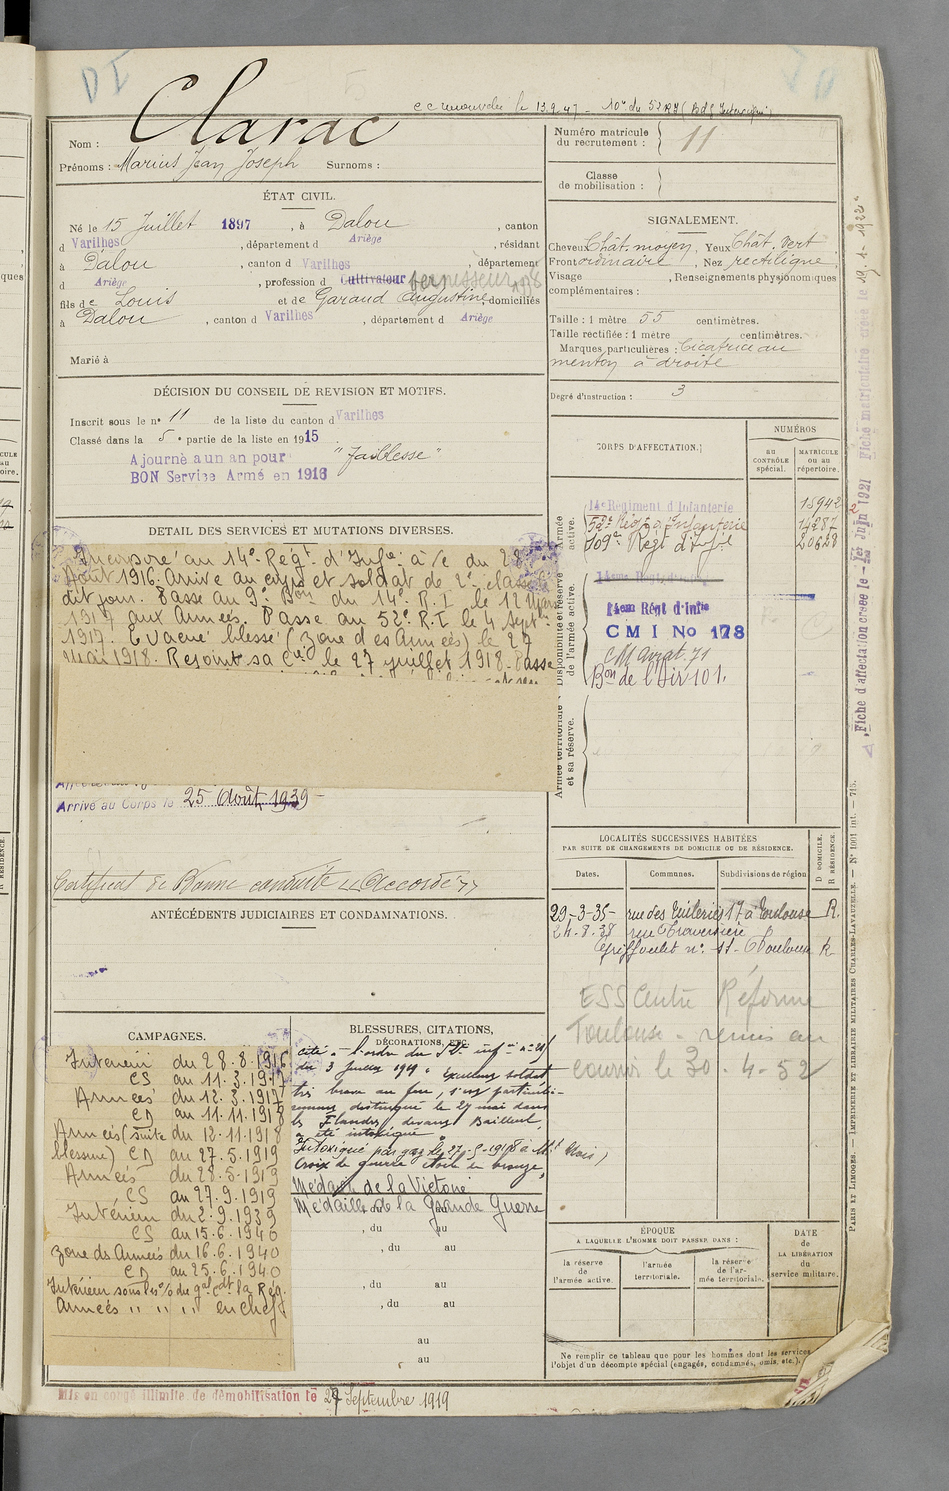 DI
cc le 13.2.47 - 10e du 52 RI
Clarac
Nom :
Prénoms : Marius Jean Joseph Surnoms :
Numéro matricule
du recrutement : 11
Classe
de mobilisation :
ÉTAT CIVIL.
Né le 15 Juillet 1897, à Dalou, canton
d Varilhes, département d Ariège, résidant
à Dalou, canton d Varilhes, département
d Ariège, profession d Cultivateur 1938
fils de Louis et de Garaud Augustine domiciliés
à Dalou, canton d Varilhes, département d Ariège
Marié à
SIGNALEMENT.
Cheveux Chât. moyen, Yeux Chât. vert
Front ordinaire, Nez rectiligne,
Visage , Renseignements physionomiques
complémentaires :
Taille : 1 mètre 55 centimètres.
Taille rectifiée : 1 mètre centimètres.
Marques particulières : Cicatrice au
menton à droite
Degré d'instruction : 3
DÉCISION DU CONSEIL DE REVISION ET MOTIFS.
Inscrit sous le no 11 de la liste du canton d Varilhes
Classé dans la 5e partie de la liste en 1915
Ajourné a un an pour "faiblesse"
BON Service Armé en 1916
DETAIL DES SERVICES ET MUTATIONS DIVERSES.
Incorporé au 14e Régt d'Infie à /c du 28
Août 1916. Arrivé au corps et soldat de 2e classe
dit jour. Passe au 9e Bon du 14e R.I le 12 Mars
1917 aux Armées. Passe au 52e R.I le 4 Septbre
1917. Evacué blessé (zone des Armées) le 27
Mai 1918. Rejoint sa Cie le 27 juillet 1918. Passe
Arrivé au Corps le 25 Août 1939 -
Certificat de Bonne conduite "Accordé"
CORPS D'AFFECTATION.
NUMÉROS
AU CONTRÔLE spécial.
MATRICULE ou au répertoire.
Armée active.
14e Regiment d'Infanterie 15942
52e Rég. d'Infanterie 14287
109e Régt d'Infie 20628
Disponibilité et réserve de l'armée active.
14eme Régt d'Infie
CMI No 178
CM Aviat. 71
Bon de l'Air 101.
Armée territoriale et sa réserve.
Fiche d'affectation créée le 1er Juin 1921 Fiche matriculaire créée le 19.1.1922
ANTÉCÉDENTS JUDICIAIRES ET CONDAMNATIONS.
LOCALITÉS SUCCESSIVES HABITÉES
PAR SUITE DE CHANGEMENTS DE DOMICILE OU DE RÉSIDENCE.
Dates. Communes. Subdivisions de région D DOMICILE. R RÉSIDENCE.
29-3-35- rue des Tuileries 17 à Toulouse R.
24.8.38 rue Traversière
Griffoulet no 11- Toulouse R
ESS Centre Réforme
Toulouse - remis au
courrier le 30.4-52
CAMPAGNES.
Intérieur du 28.8.1916
CS au 11.3.1917
Armées du 12.3.1917
CD au 11.11.1918
Armées (suite du 12.11.1918
blessure) CD au 27.5.1919
Armées du 28.5.1919
CS au 27.9.1919
Intérieur du 2.9.1939
CS au 15.6.1940
Zone des Armées du 16.6.1940
CD au 25.6.1940
Intérieur sous les o/ du gal cdt la Rég.
Armées " " " en chef
BLESSURES, CITATIONS,
DÉCORATIONS, ETC.
Cité à l'ordre du
du 3 Janvier 1919 " Excellent soldat
très brave au feu, s'est particuliè-
rement distingué le 27 mai dans
les Flandres devant Bailleul,
a été intoxiqué "
Intoxiqué par gaz le 27-5-1918 à
Croix de guerre étoile en bronze,
Médaille de la Victoire
Médaille de la Grande Guerre
, du au
, du au
, du au
, du au
au
au
ÉPOQUE
A LAQUELLE L'HOMME DOIT PASSER DANS :
la réserve de l'armée active.
l'armée territoriale.
la réserve de l'armée territoriale.
DATE
de
LA LIBÉRATION
du
service militaire.
Ne remplir ce tableau que pour les hommes dont les services
l'objet d'un décompte spécial (engagés, condamnés, omis, etc.).
Mis en congé illimité de démobilisation le 27 Septembre 1919
PARIS ET LIMOGES. — IMPRIMERIE ET LIBRAIRIE MILITAIRES CHARLES-LAVAUZELLE. — No 1001 int. — 715.